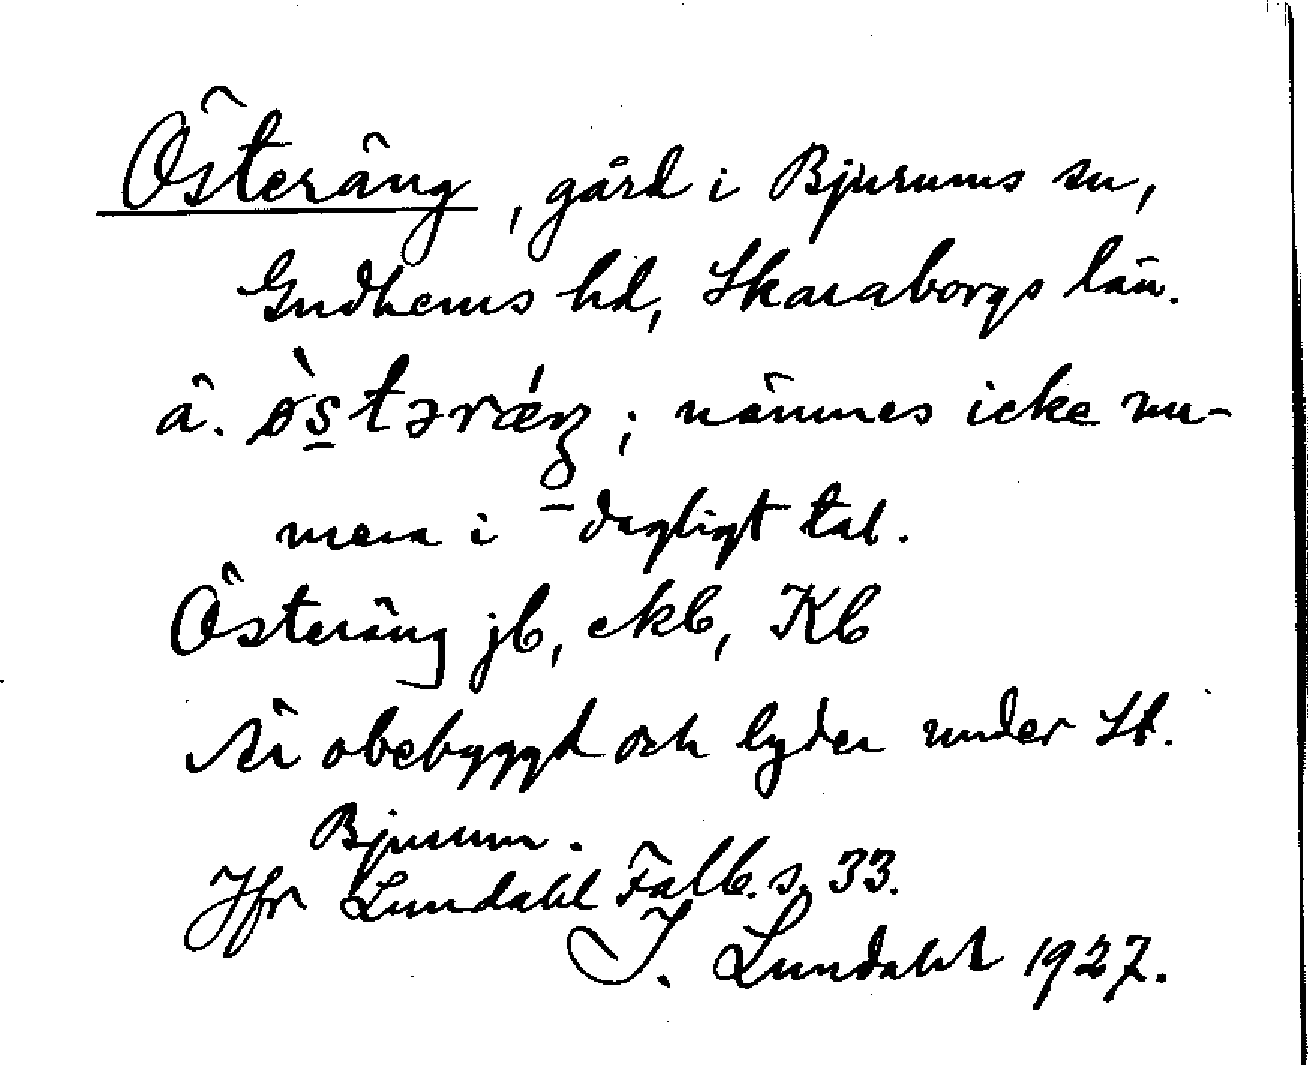 Österäng, gård i Bjurums sn,
Gudhems hd, Skaraborgs län.
ä. ø̀stəræ̂ŋ; nämnes icke nu-
mera i dagligt tal.
Österäng jb, ekb, Kb
Är obebyggd och lyder under St.
Bjurum.
Jfr Lundahl Falb. s. 33.
I. Lundahl 1927.